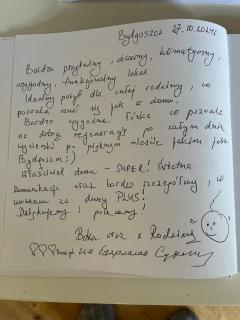 Bydgoszcz 27.10.2024r
Bardzo przytulny, obszerny, klimatyczny,
wygodny, funkcjonalny lokal.
Idealny pobyt dla całej rodziny, co
pozwala czuć się jak w domu.
Bardzo wygodne łóżka co pozwala
na dobrą regenerację po całym dniu
wycieczki po pięknym mieście jakim jest
Bydgoszcz :)
Właściciel domu - SUPER! Świetna
komunikacja oraz bardzo szczegółowy, co
uważam za duży PLUS!
Dziękujemy i polecamy!
oraz z Rodziną